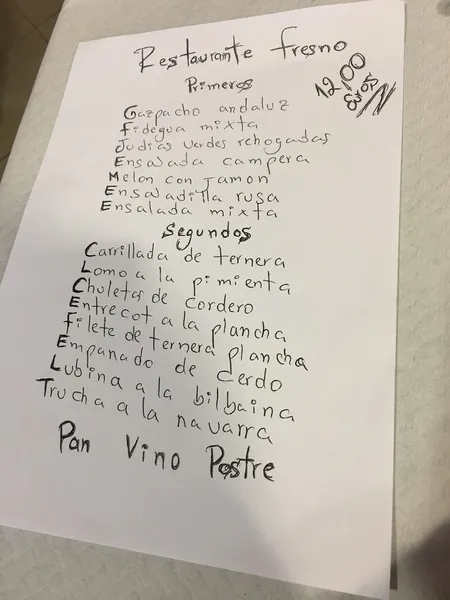 Restaurante Fresno
12,00
Euros
Primeros
Gazpacho andaluz
Fidegua mixta
Judias verdes rehogadas
Ensalada campera
Melon con Jamon
Ensaladilla rusa
Ensalada mixta
Segundos
Carrillada de ternera
Lomo a la pimienta
Chuletas de Cordero
Entrecot a la plancha
Filete de ternera plancha
Empanado de Cerdo
Lubina a la bilbaina
Trucha a la navarra
Pan Vino Postre